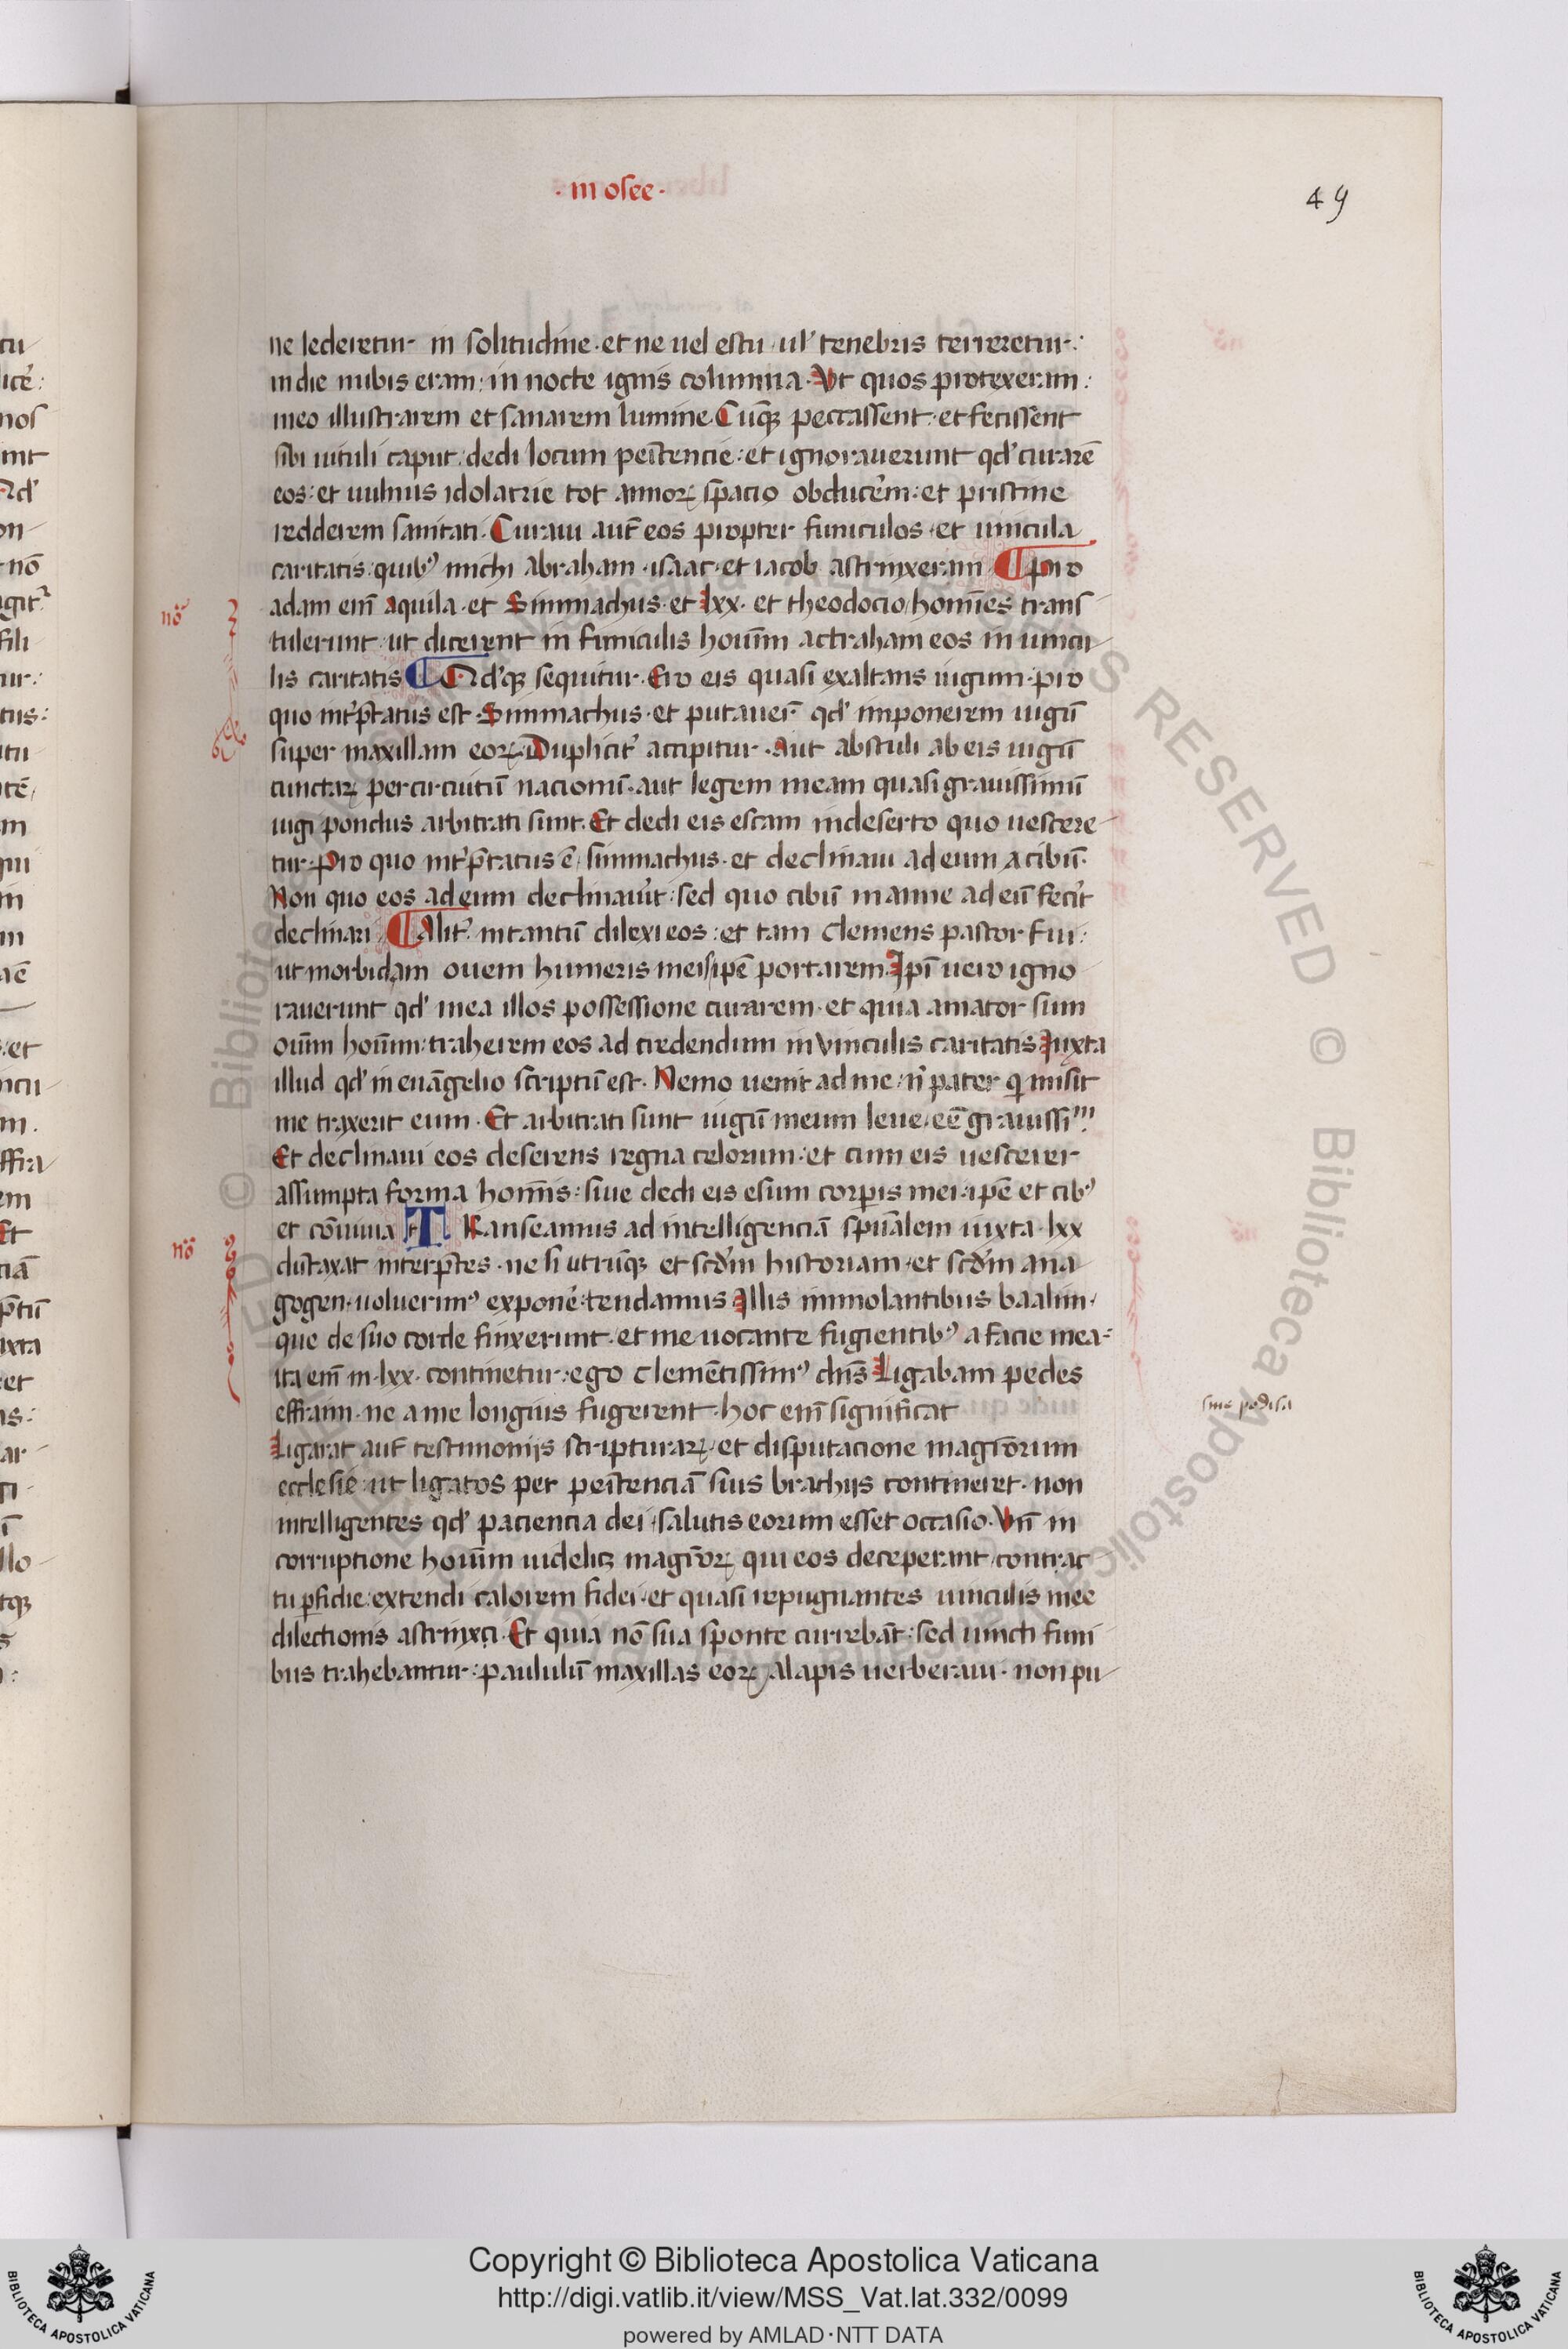 · in osee ·
49
ne lederetur in solitudine · et ne uel estu · ul' tenebris terreretur :
in die nubis eram : in nocte ignis columna · Vt quos protexeram :
meo illustrarem et sanarem lumine · Cūq; peccassent · et fecissent
sibi uituli caput : dedi locum peītencie : et ignorauerunt qd' curarē
eos : et uulnus idolatrie tot annoꝝ spacio obducērm : et pristine
redderem sanitati · Curaui aut̄ eos propter funiculos · et uincula
caritatis · quib' michi abraham · isaac · et iacob astrinxeram ¶ Pro
adam em̄ aquila · et Simmachus · et lxx · et theodocio / homīes trans
tulerunt · ut dicerent in funiculis houīm actraham eos in uincu
lis caritatis ¶ Qd'q; sequitur · Ero eis quasi exaltans iugum · pro
quo int̄p̄tatus est · Simmachus · et putauer̄ qd' imponerem iugū
super maxillam eoꝝ · Duplicit̄ accipitur · Aut abstuli ab eis iugū
cunctaꝝ per circuitū nacionū · aut legem meam quasi grauissimū
iugi pondus arbitrati sunt · Et dedi eis escam in deserto quo uescere
tur · Pro quo int̄p̄tatus ē / simmachus · et declinaui ad eum a cibū ·
Non quo eos ad eum declinauīt : sed quo cibū manne ad eū fecīt
declinari ¶ Alit̄ · in tantū dilexi eos : et tam clemens pastor fui :
ut morbidam ouem humeris meis ipē portarem · Ipī uero igno
rauerunt qd' mea illos possessione curarem · et quia amator sum
ouīm houīm : traherem eos ad credendum in vinculis caritatis Iuxta
illud qd' in euāgelio scriptū est · Nemo uenit ad me / n' pater q̄ misit
me traxerit eum · Et arbitrati sunt iugū meum leue / eē grauissi'''
Et declinaui eos deserens regna celorum : et cum eis uescerer
assumpta forma homīs : siue dedi eis esum corp̄is mei · ipē et cib'
et cōuiuia TRanseamus ad intelligenciā sp̄ualem iuxta · lxx
dūtaxat interp̄tes · ne si utrūq; et scd̄m historiam · et scd̄m ana
gogen · uoluerim' exponē : tendamus Illis immolantibus baalim ·
que de suo corde finxerunt · et me uocante fugientib' a facie mea =
ita em̄ in · lxx · continetur : ego clemētissim' dn̄s Ligabam pedes
effraim · ne a me longius fugerent · hoc em̄ significat
Ligarat aut̄ testimonijs scripturaꝝ · et disputacione magr̄orum
ecclesie : ut ligatos per peītenciā suis brachijs contineret · non
intelligentes qd' paciencia dei · salutis eorum esset occasio · Vn̄ in
corruptione houīm uidelic; magr̄oꝝ qui eos deceperant / contrac
tu p̄fidie : extendi calorem fidei · et quasi repugnantes uinculis mee
dilectionis astrinxi · Et quia nō sua sponte currebāt : sed uincti funi
bus trahebantur : paululū maxillas eoꝝ alapis uerberaui · non pu
Copyright © Biblioteca Apostolica Vaticana
http://digi.vatlib.it/view/MSS_Vat.lat.332/0099
powered by AMLAD·NTT DATA